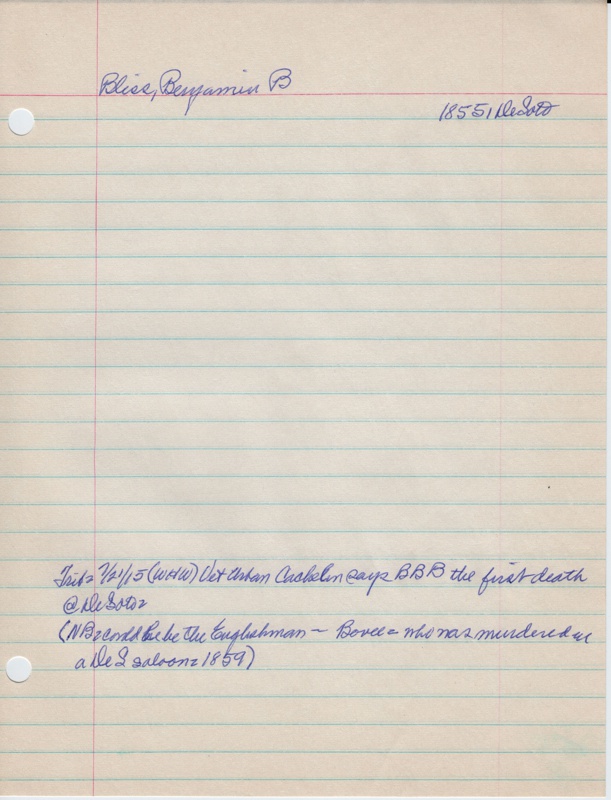 Bliss, Benjamin B
1855, DeSoto
Trib= 7/21/15 (WHW) Vet Urban says BBB the first death
@ DeSoto=
(NB= could he be the Englishman - Bovee= who was murdered in
a De S saloon= 1859)